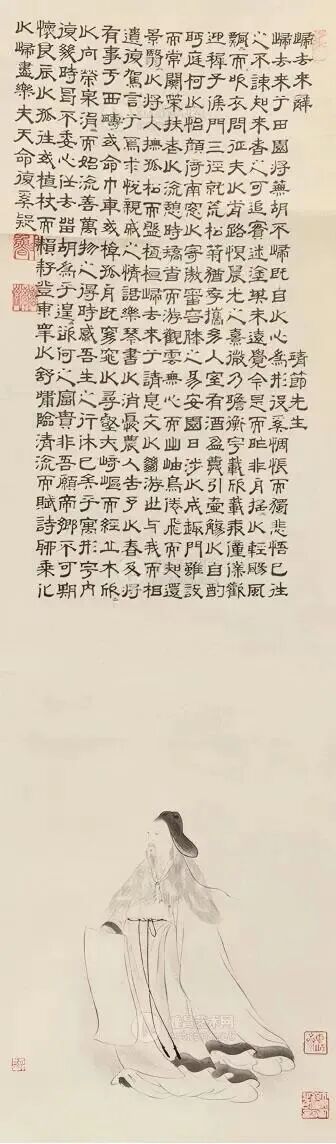 歸去來辭
靖節先生
歸去來兮田園將蕪胡不歸既自以心為形役奚惆悵而獨悲悟已往
之不諫知來者之可追實迷塗其未遠覺今是而昨非舟搖以輕颺風
飄而吹衣問征夫以前路恨晨光之熹微乃瞻衡宇載欣載奔僮僕歡
迎稚子候門三徑就荒松菊猶存攜幼入室有酒盈樽引壺觴以自酌
眄庭柯以怡顏倚南窗以寄傲審容膝之易安園日涉以成趣門雖設
而常關策扶老以流憩時矯首而游觀雲無心而出岫鳥倦飛而知還
景翳以將入撫孤松而盤桓歸去來兮請息交以絕游世與我而相
遺復駕言兮焉求悅親戚之情話樂琴書以消憂農人告予以春及將
有事乎西疇或命巾車或棹孤舟既窈窕以尋壑亦崎嶇而經丘木欣
以向榮泉涓而始流善萬物之得時感吾生之行休已矣乎寓形宇內
復幾時曷不委心任去留胡為乎遑欲何之富貴非吾願帝鄉不可期
懷良辰以孤往或植杖而耘耔登東皋以舒嘯臨清流而賦詩聊乘化
以歸盡樂夫天命復奚疑
雅昌艺术网